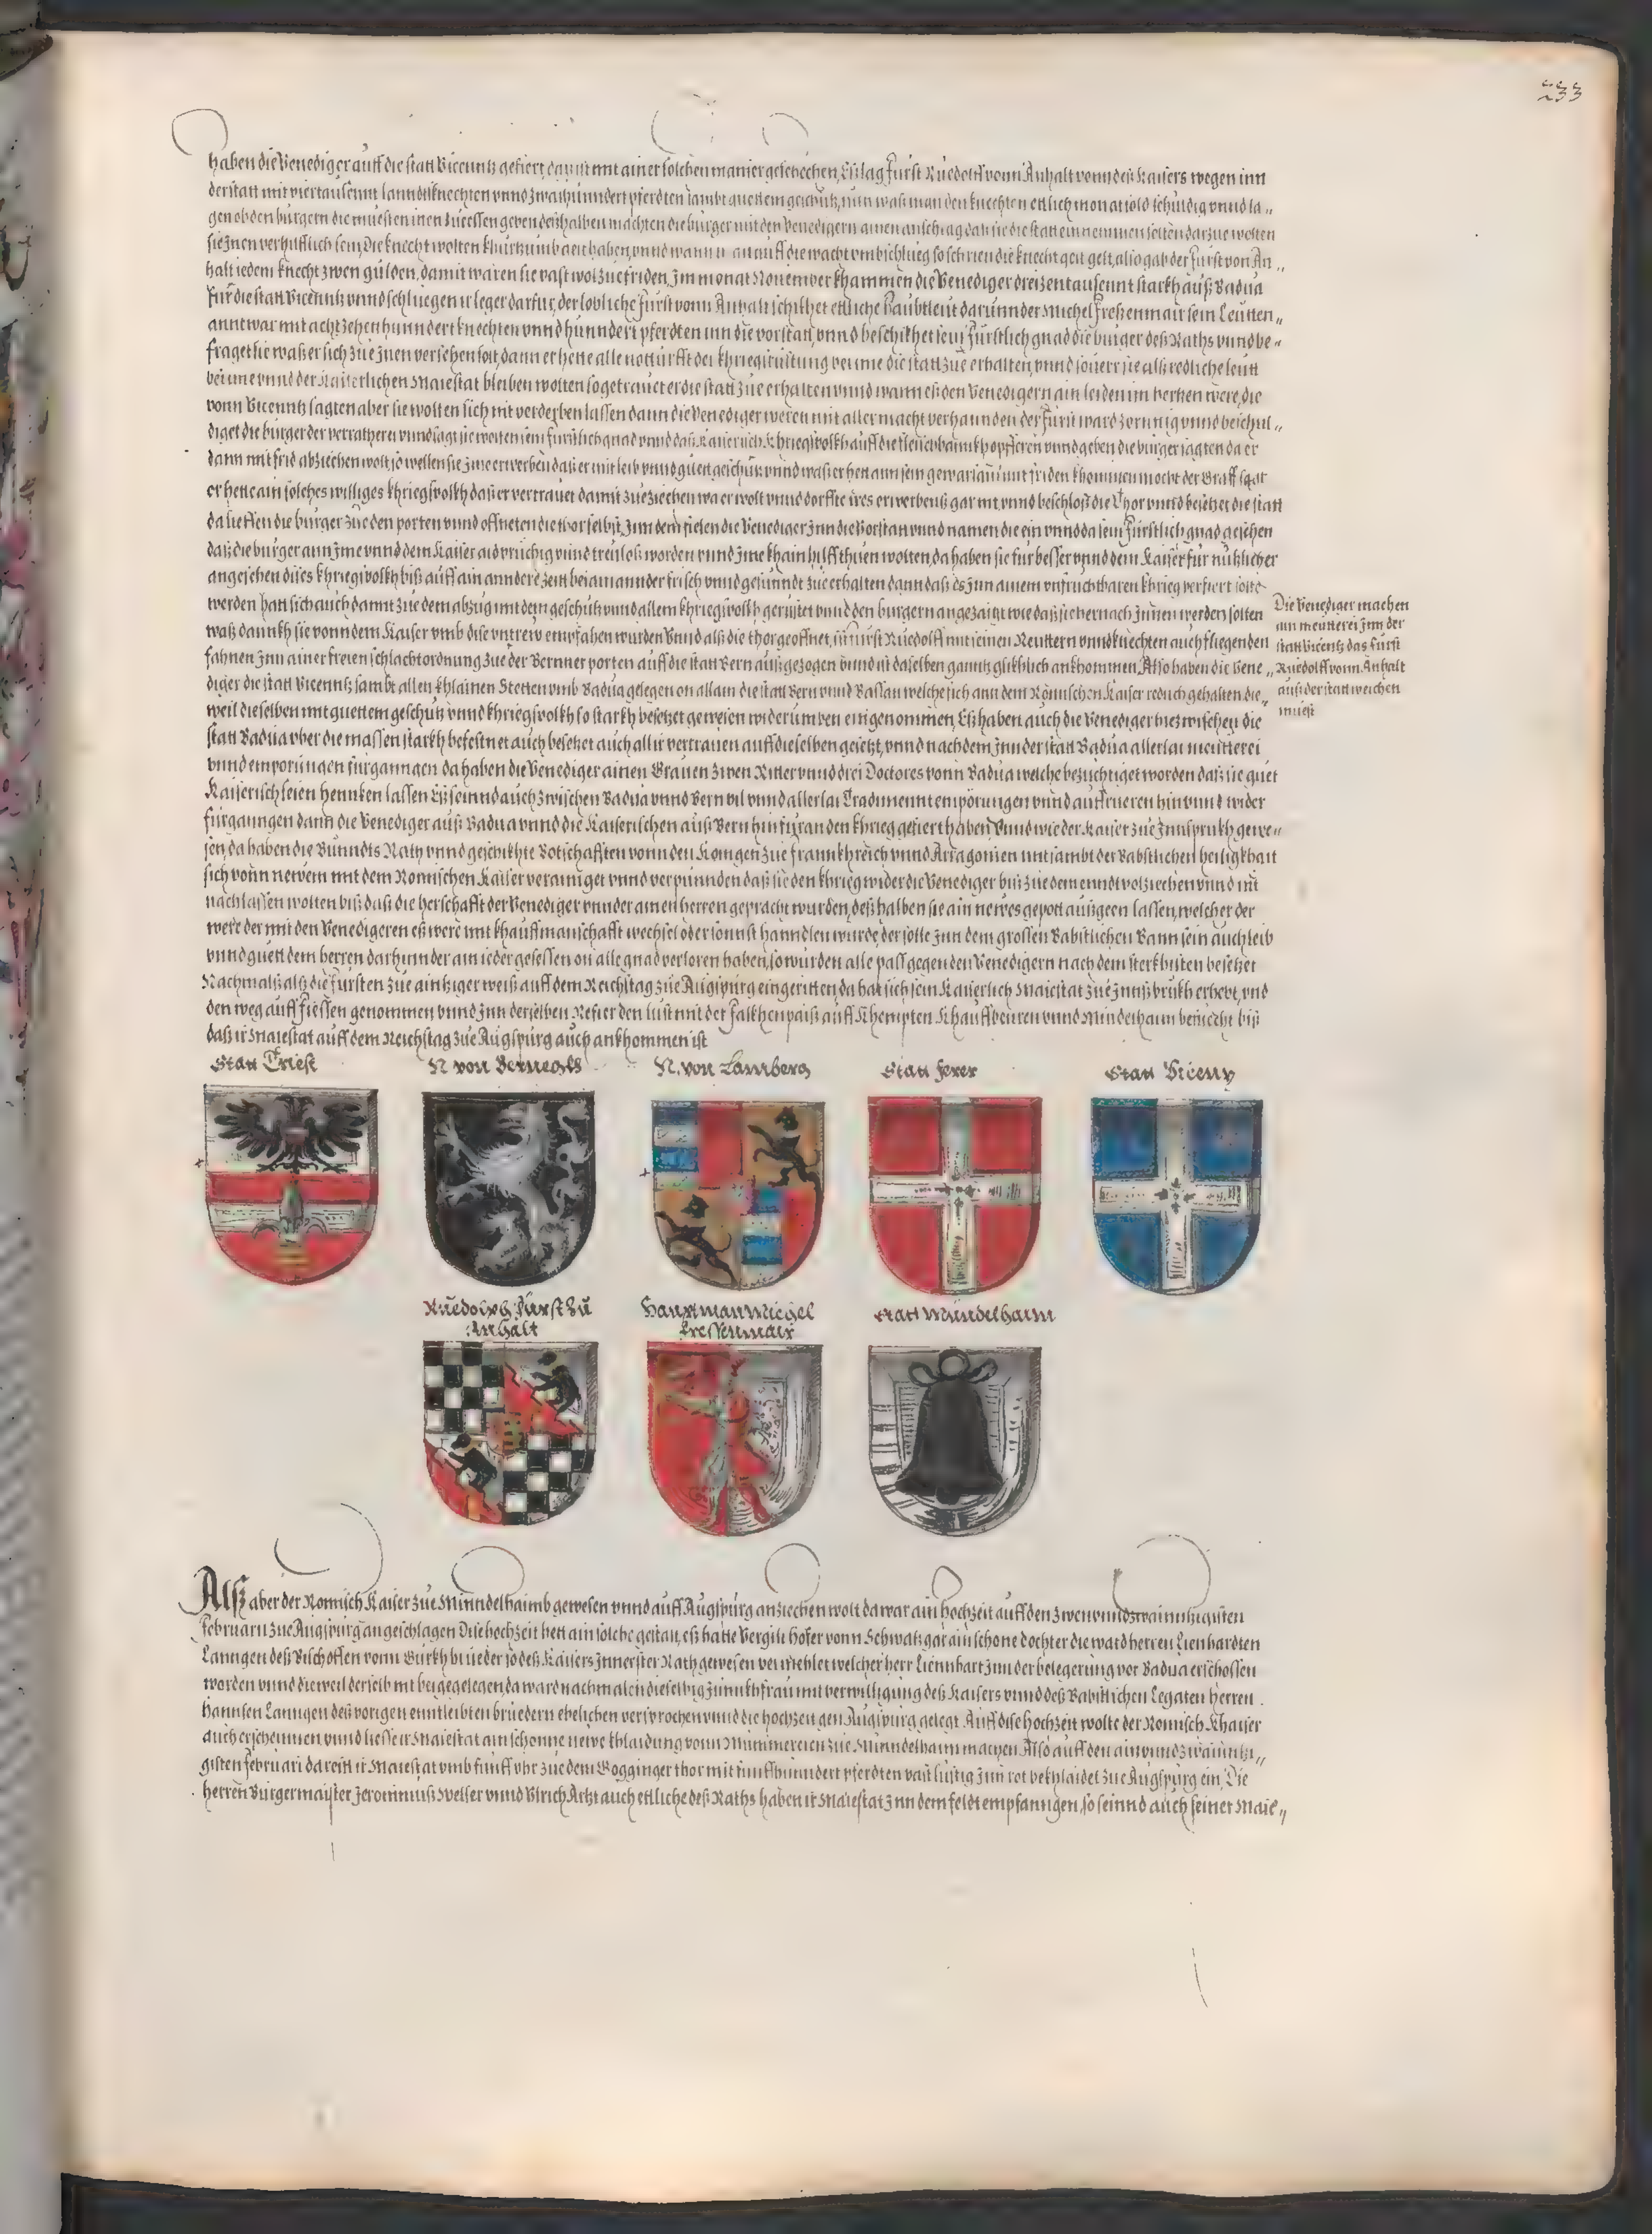 233
haben die Venediger auff die statt Vicenntz gefiert damit mit ainer solchen manier geschechen, Eß lag Fürst Rüedolff vonn Anhalt vonn deß Kaisers wegen inn
der statt mit viertausennt lanndtsknechten vnnd zwaihünndert pferdten sambt guettem geschütz, nun waß man den knechten ettlich monat sold schüldig vnnd la„
gen ob den bürgern die muesten inen zue essen geben deßhalben machten die bürger mit den Venedigern ainen anschlag daß sie die statt einnemmen solten darzue wolten
sie Jnen verhülfflich sein, Die knecht wolten khürtzumb gelt haben, vnnd wann auff die wacht vmbschlueg so schrien die knecht gelt gelt, also gab der Fürst von An„
halt iedem knecht zwen gülden, damit waren sie vast wol zue friden, Jm monat Nouember khammen die Venediger dreizentausennt starkh auß Badua
für die statt Vicenntz vnnd schluegen ir leger darfür, der loblich Fürst vonn Anhalt schikhet ettliche haubtleut darunnder Michel Freßenmair sein Leutten„
annt war mit achtzehenhunndert knechten vnnd hunndert pferdten inn die vorstatt, vnnd beschikhet sein Fürstlich gnad die bürger deß Raths vnnd be„
fraget sie waß er sich zue Jnen versehen solt, dann er hette alle notturfft der khriegsrüstung bei ime die statt zue erhalten, vnnd souerr sie alß redliche leutt
bei ime vnnd der Kaiserlichen Maiestat bleiben wolten so getrauet er die statt zue erhalten vnnd wann eß den Venedigern ain leiden im hertzen were, die
vonn Vicenntz sagten aber sie wolten sich nit verderben lassen dann die Venediger weren mit aller macht verhannden der Fürst ward zornnig vnnd beschul„
diget die bürger der verrätherei vnnd sagt sie wolten sein fürstlich gnad vnnd daß Kaiserlich khriegsvolkh auff die fleischbannkh opfferen vnnd geben die bürger sagten da er
dann mit frid abziechen wolt so wellen sie Jme erwerben daß er mit leib vnnd guett geschütz vnnd waß er hett ann sein gewarsam mit friden khommen mocht der Graff sagt
er hette ain solches williges khriegsvolkh daß er vertrauet damit zue ziechen wa er wolt vnnd dorffte ires erwerbens gar nit vnnd beschloß die Thor vnnd besetzet die statt
da lieffen die bürger zue den porten vnnd offneten die thor selbst, Jnn dem fielen die Venediger Jnn die Vorstatt vnnd namen die ein vnnd da sein Fürstlich gnad gesehen
daß die bürger ann Jme vnnd dem Kaiser aidprüchig vnnd treuloß worden vnnd Jme khain hilff thuen wolten, da haben sie für besser vnnd dem Kaiser für nützlicher
angesehen dises khriegsvolkh biß auff ain anndere zeit bei ainannder frisch vnnd gesunndt zue erhalten dann daß es Jnn ainem vnfruchtbaren khrieg verfiert solte
werden hatt sich auch damit zue dem abzug mit dem geschütz vnnd allem khriegsvolkh gerüstet vnnd den bürgern angezaigt wie daß sie hernach Jnnen werden solten
waß dannkh sie vonn dem Kaiser vmb dise vntrew empfahen wurden Vnnd alß die thor geoffnet, ist Fürst Ruedolff mit seinen Reuttern vnnd knechten auch fliegenden
fahnen Jnn ainer freien schlachtordnung zue der Bernner porten auff die statt Bern außgezogen vnnd ist daselben ganntz gliklich ankhommen, Also haben die Vene„
diger die statt Vicenntz sambt allen khlainen Stetten vmb Badua gelegen on allain die statt Bern vnnd Bassan welche sich ann dem Römischen Kaiser redlich gehalten die„
weil dieselben mit guettem geschütz vnnd khriegsvolkh so starkh besetzet gewesen widerumben eingenommen, Eß haben auch die Venediger hiezwischen die
statt Badua vber die massen starkh befestnet auch besetzet auch all ir vertrauen auff dieselben gesetzt, vnnd nachdem Jnn der statt Badua allerlai meutterei
vnnd emporungen fürganngen da haben die Venediger ainen Grauen zwen Ritter vnnd drei Doctores vonn Badua welche bezichtiget worden daß sie guet
Kaiserisch seien hennken lassen Eß seinnd auch zwischen Badua vnnd Bern vil vnnd allerlai Tradimennt emporungen vnnd auffrueren hin vnnd wider
fürganngen dann die Venediger auß Badua vnnd die Kaiserischen auß Bern hinfür an den khrieg gefiert haben, Vnnd wie der Kaiser zue Innsprukh gewe„
sen, da haben die Bunndts Räth vnnd geschikhte Botschafften vonn den Königen zue Frannkhreich vnnd Arragonien mit sambt der Babstlichen heiligkhait
sich vonn newem mit dem Romischen Kaiser verainiget vnnd verpunnden daß sie den khrieg wider die Venediger biß zue dem ennd volziechen vnnd nit
nachlassen wolten biß daß die herschafft der Venediger vnnder ainen herren gepracht wurden, deßhalben sie ain newes gepott außgeen lassen, welcher der
were der mit den Venedigeren eß were mit khauffmanschafft wechsel oder sonnst hanndlen wurde der solle Jnn dem grossen Babstlichen Bann sein auch leib
vnnd guett dem herren darhinnder ain ieder gesessen on alle gnad verloren haben, so wurden alle pass gegen den Venedigern nach dem sterkhisten besetzet
Nachmalß alß die Fürsten zue aintziger weiß auff dem Reichstag zue Augspurg eingeritten, da hat sich sein Kaiserlich Maiestat zue Innßbrukh erhebt, vnd
den weg auff Fiessen genommen vnnd Jnn derselben Refier den lust mit der Falkhenpaiß auff Khempten Khauffbeuren vnnd Mindelhaim besuecht biß
daß ir Maiestat auff dem Reichstag zue Augspurg auch ankhommen ist
Die Venediger machen
ain meutterei Jnn der
statt Vicentz das Fürst
Ruedolff vonn Anhalt
auß der statt weichen
muest
Statt Triest
N. von Bernegkh
N. von Lamberg
Statt Ferer
Statt Vicentz
Ruedolph Fürst zu
Anhalt
Hauptman Michel
Fressenmair
Statt Mündelhaim
Alß aber der Romisch Kaiser zue Minndelhaimb gewesen vnnd auff Augspurg anziechen wolt da war ain hochzeit auff den zwenvnndzwainntzigisten
Februarii zue Augspurg angeschlagen Die hochzeit hett ain solche gestalt, eß hatte Vergili Hofer vonn Schwatz gar ain schone dochter die ward herren Lienhardten
Lanngen deß Bischoffen vonn Gurkh brueder so deß Kaisers Jnnerster Rath gewesen vermehlet welcher herr Liennhart Jnn der belegerung vor Badua erschossen
worden vnnd dieweil derselb nit beigelegen da ward nachmalen dieselbig Junnkhfrau mit verwilligung deß Kaisers vnnd deß Babstlichen Legaten Herren
Hannsen Lanngen deß vorigen enntleibten bruedern ehelichen versprochen vnnd die hochzeit gen Augspurg gelegt. Auff dise hochzeit wolte der Romisch Khaiser
auch erscheinnen vnnd liesse ir Maiestat ain schonne newe khlaidung vonn Mummereien zue Minndelhaim machen Also auff den ainvnndzwainntzi„
gisten Februari da reitt ir Maiestat vmb funff vhr zue dem Gogginger thor mit funffhunndert pferdten vast lustig Jnn rot bekhlaidet zue Augspurg ein, Die
herren Burgermaister Jeronimuß Welser vnnd Vlrich Artzt auch ettliche deß Raths haben ir Maiestat Jnn dem feldt empfanngen, so seinnd auch seiner Maie„